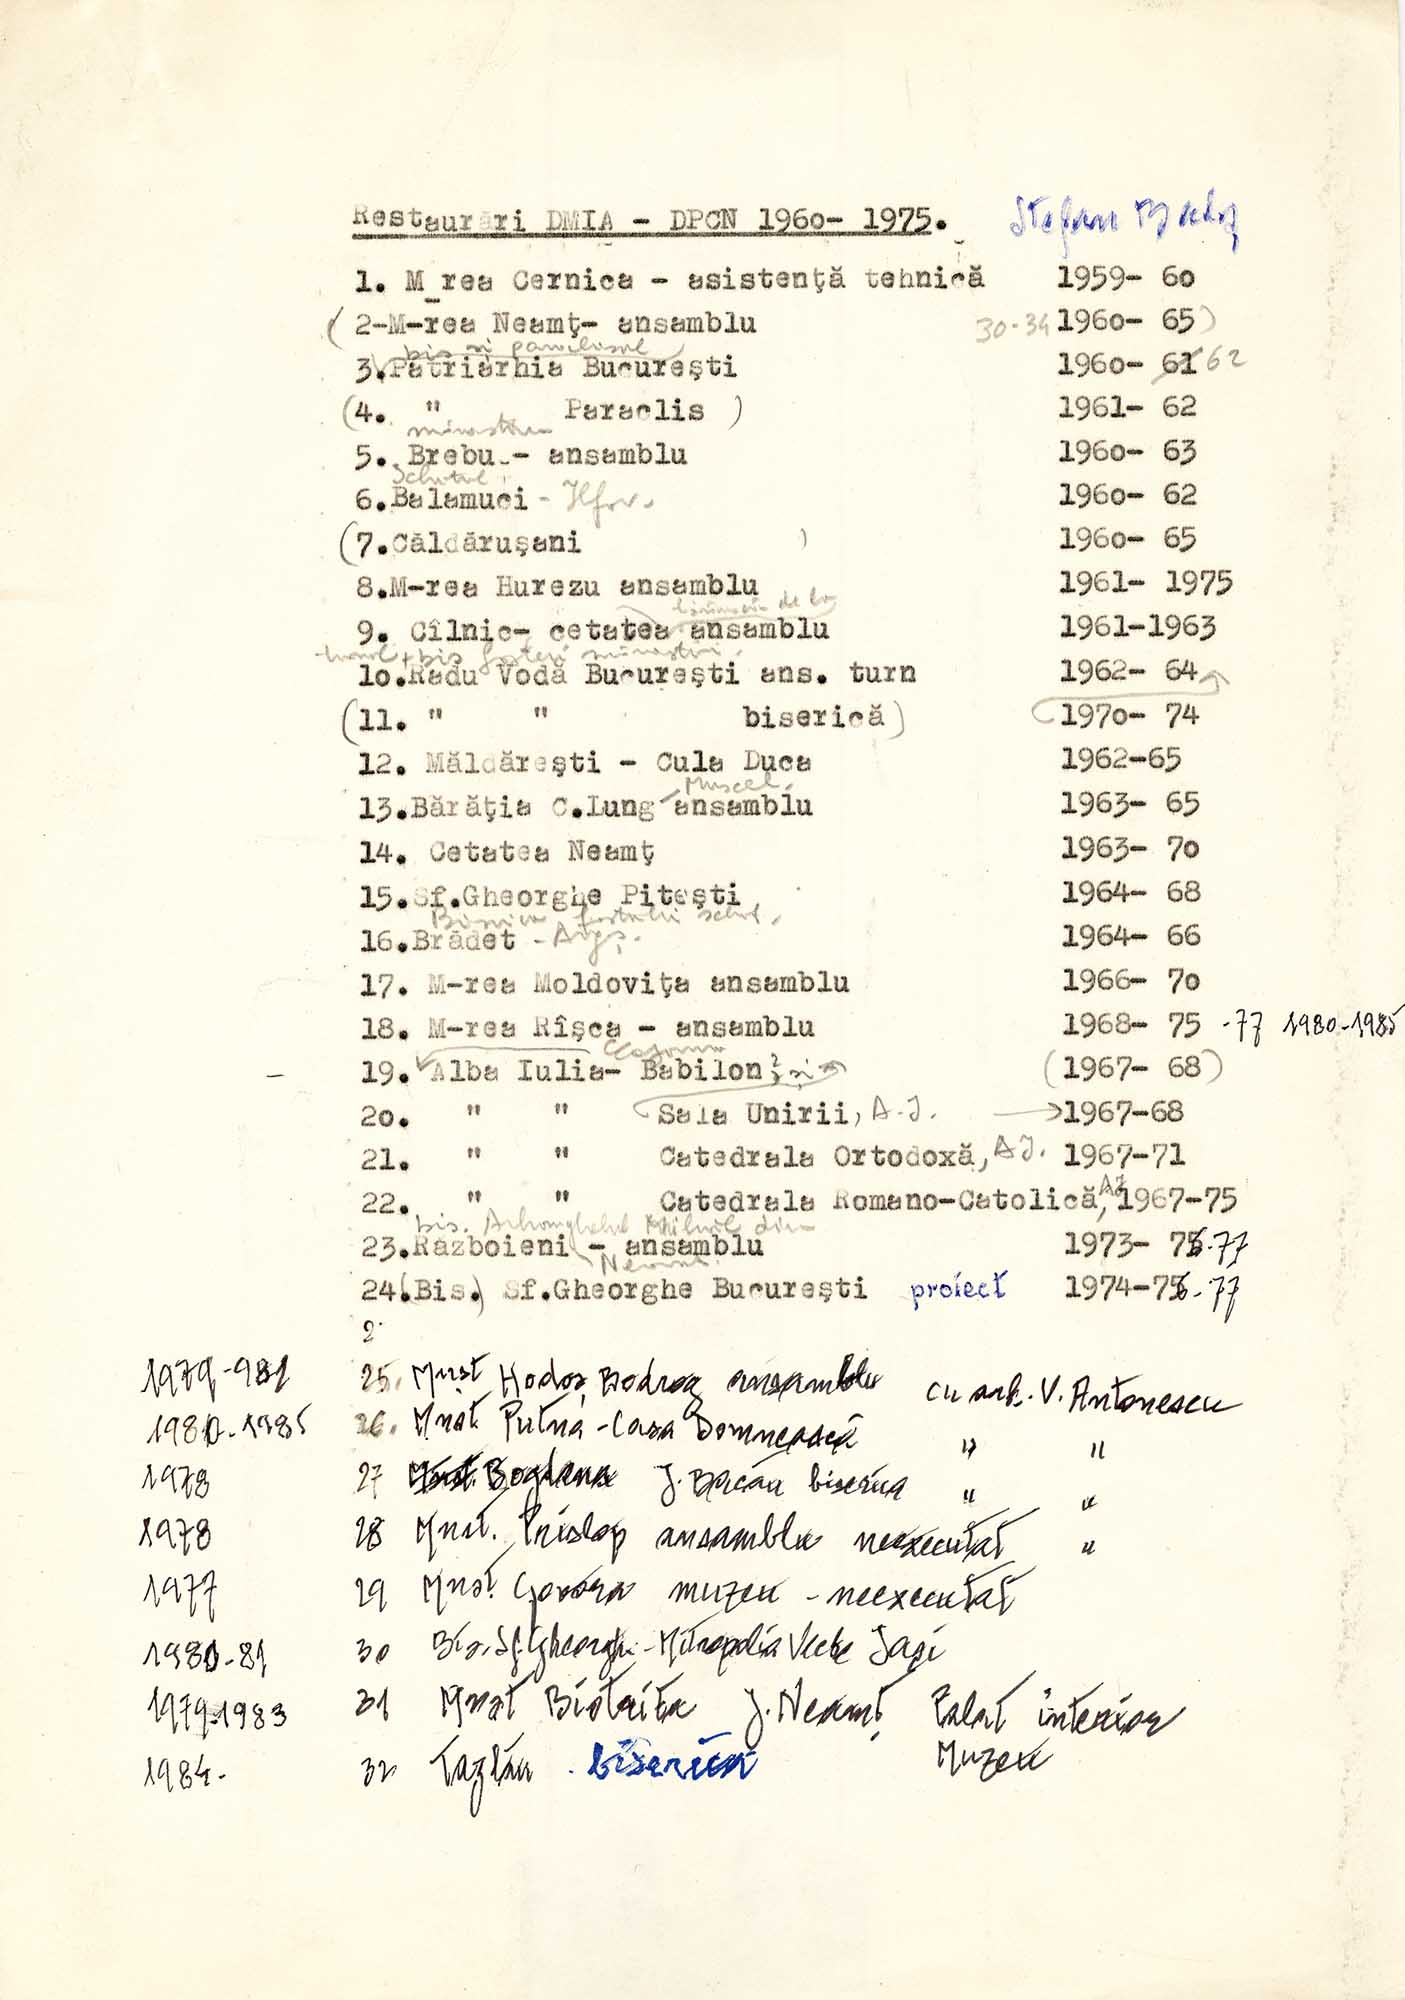 Restaurări DMIA - DPCN 196o- 1975. Ștefan Balș
1. M_rea Cernica - asistență tehnică 1959- 6o
(2-M-rea Neamț- ansamblu 30-34 196o- 65)
bis și paraclisul
3.Patriarhia București 196o- 61 62
(4. " Paraclis) 1961- 62
mănăstirea
5. Brebu - ansamblu 196o- 63
Schitul
6.Balamuci - Ilfov. 196o- 62
(7.Căldărușani ) 196o- 65
8.M-rea Hurezu ansamblu 1961- 1975
9. Cîlnic- cetatea ansamblu 1961-1963
turnul + bis fostei mănăstiri.
1o.Radu Vodă București ans. turn 1962- 64
(11. " " biserică) 197o- 74
12. Măldărești - Cula Duca 1962-65
Muscel
13.Bărăția C.Lung ansamblu 1963- 65
14. Cetatea Neamț 1963- 7o
15.Sf.Gheorghe Pitești 1964- 68
Biserica fostului schit.
16.Brădet - Argș. 1964- 66
17. M-rea Moldovița ansamblu 1966- 7o
18. M-rea Rîșca - ansamblu 1968- 75 -77 1980-1985
19. Alba Iulia- Babilon ? și (1967- 68)
2o. " " Sala Unirii, A.I. 1967-68
21. " " Catedrala Ortodoxă, A.I. 1967-71
22. " " Catedrala Romano-Catolică, AI 1967-75
bis. Arhanghelul Mihail din
23.Războieni - ansamblu 1973- 76-77
Neamț.
24.(Bis.) Sf.Gheorghe București proiect 1974-76-77
2
1979-981 25. Mnst Hodoș Bodrog ansamblu cu arh. V. Antonescu
1980-1985 26. Mnst. Putna - Casa Domnească " "
1978 27 Mnst. Bogdana J. Bacău biserica " "
1978 28 Mnst. Prislop ansamblu neexecutat "
1977 29 Mnst. Govora muzeu - neexecutat
1980-81 30 Bis. Sf. Gheorghe - Mitropolia Veche Iași
1979-1983 31 Mnst Bistrița J. Neamț Palat interior
Muzeu
1984- 32 Tazlău . biserica